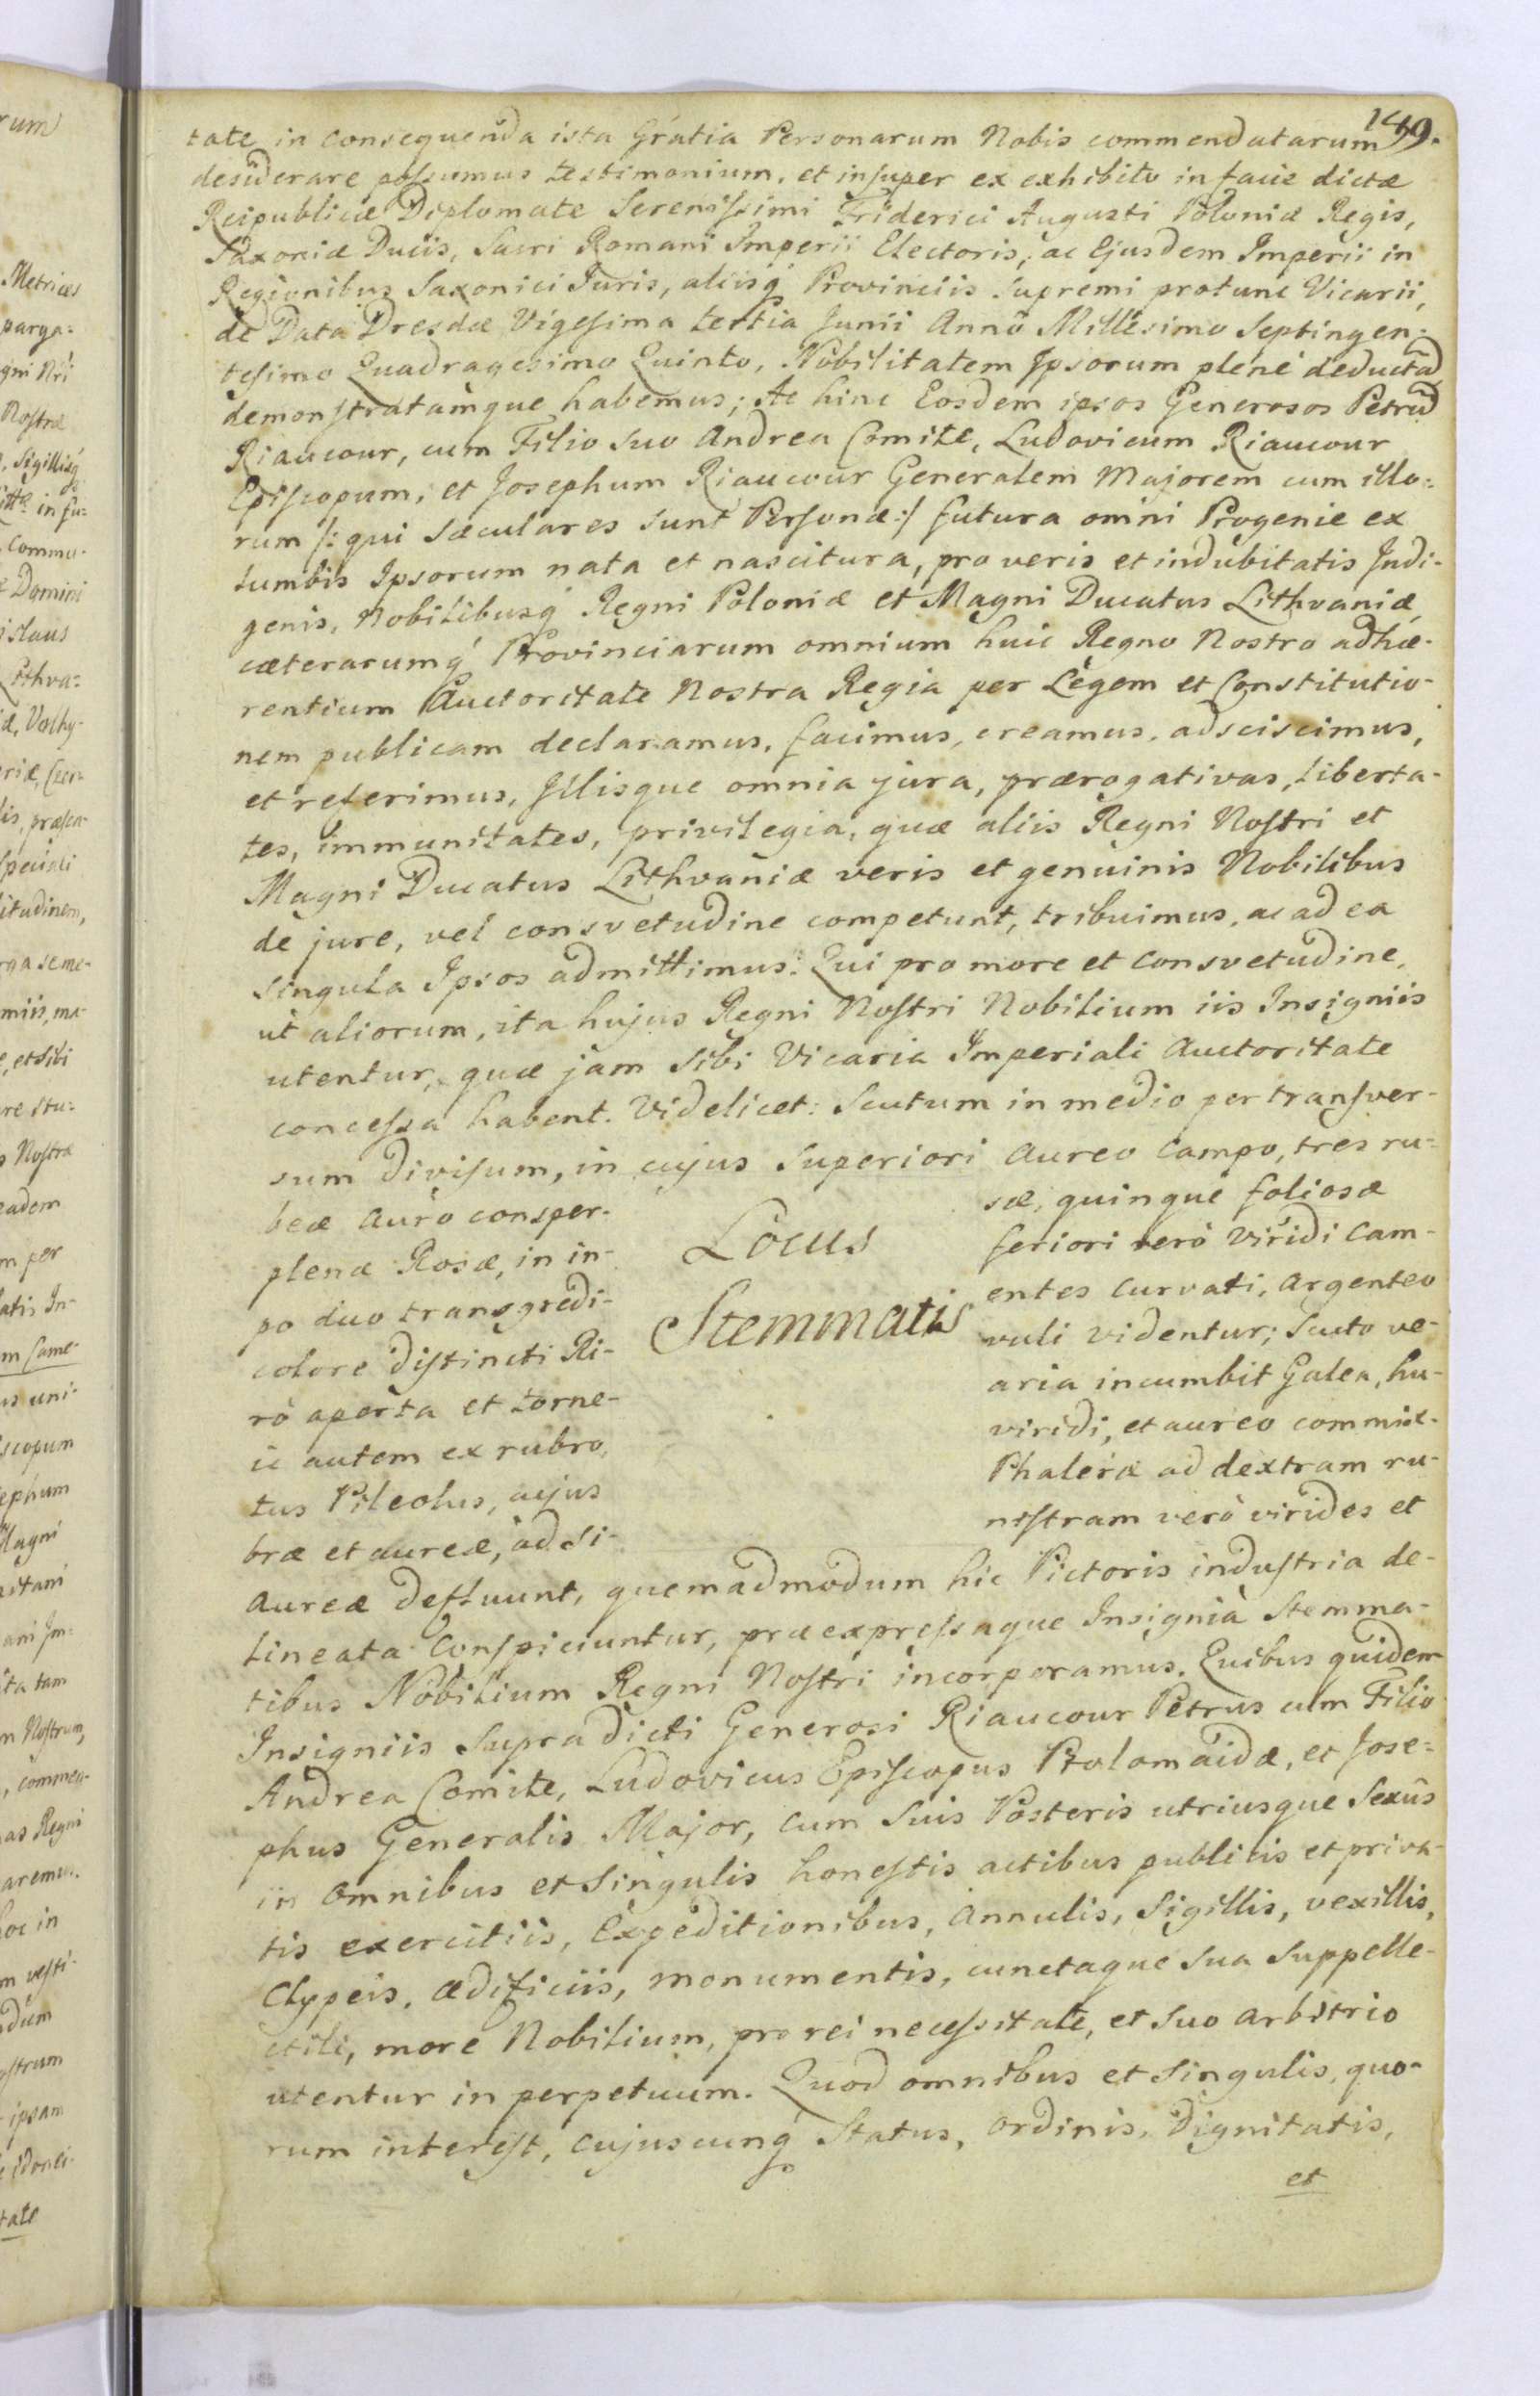 149.
tate in consequenda ista Gratia Personarum Nobis commendatarum
desiderare possumus testimonium, et insuper ex exhibito in facie dictæ
Reipublicæ Diplomate Serenissimi Friderici Augusti Poloniæ Regis,
Saxoniæ Ducis, Sacri Romani Imperii Electoris, ac Ejusdem Imperii in
Regionibus Saxonici Juris, aliisq Provinciis supremi protunc Vicarii,
de Data Dresdæ Vigesima tertia Junii Anno Millesimo Septingen-
tesimo Quadragesimo Quinto, Nobilitatem Ipsorum plenè deductã
demonstratamque habemus; Ac hinc Eosdem ipsos Generosos Petrũ
Riaucour, cum Filio suo Andrea Comite, Ludovicum Riaucour
Episcopum, et Josephum Riaucour Generalem Majorem cum illo-
rum /: qui sæculares sunt Personæ :/ futura omni Progenie ex
lumbis Ipsorum nata et nascitura, pro veris et indubitatis Indi-
genis, Nobilibusq Regni Poloniæ et Magni Ducatus Lithvaniæ,
cæterarumq Provinciarum omnium huic Regno Nostro adhæ-
rentium Auctoritate Nostra Regia per Legem et Constitutio-
nem publicam declaramus, facimus, creamus, adsciscimus,
et referimus, Illisque omnia jura, prærogativas, liberta-
tes, immunitates, privilegia, quæ aliis Regni Nostri et
Magni Ducatus Lithvaniæ veris et genuinis Nobilibus
de jure, vel consvetudine competunt, tribuimus, ac ad ea
singula Ipsos admittimus. Qui pro more et consvetudine,
ut aliorum, ita hujus Regni Nostri Nobilium iis Insigniis
utentur, quæ jam sibi Vicaria Imperiali Auctoritate
concessa habent. Videlicet: Scutum in medio per transver-
sum divisum, in cujus superiori aureo campo, tres ru-
beæ auro consper- sæ, quinque foliosæ
plenæ Rosæ, in in- feriori verò viridi cam-
po duo transgredi- entes curvati, argenteo
colore distincti Ri- vuli videntur; Scuto ve-
rò aperta et torne- aria incumbit Galea, hu-
ic autem ex rubro, viridi, et aureo commix-
tus Pileolus, cujus Phaleræ ad dextram ru-
bræ et aureæ, ad si- nistram verò virides et
Locus
Stemmatis
aureæ defluunt, quemadmodum hic Pictoris industria de-
lineata conspiciuntur, præexpressaque Insignia Stemma-
tibus Nobilium Regni Nostri incorporamus. Quibus quidem
Insigniis supradicti Generosi Riaucour Petrus cum Filio
Andrea Comite, Ludovicus Episcopus Ptolomaidæ, et Jose-
phus Generalis Major, cum suis Posteris utriusque Sexûs
in omnibus et singulis honestis actibus publicis et priva-
tis exercitiis, Expeditionibus, Annulis, Sigillis, vexillis,
Clypeis, ædificiis, monumentis, cunctaque sua suppelle-
ctili, more Nobilium, pro rei necessitate, et suo arbitrio
utentur in perpetuum. Quod omnibus et singulis, quo-
rum interest, cujuscunq Status, ordinis, Dignitatis,
et